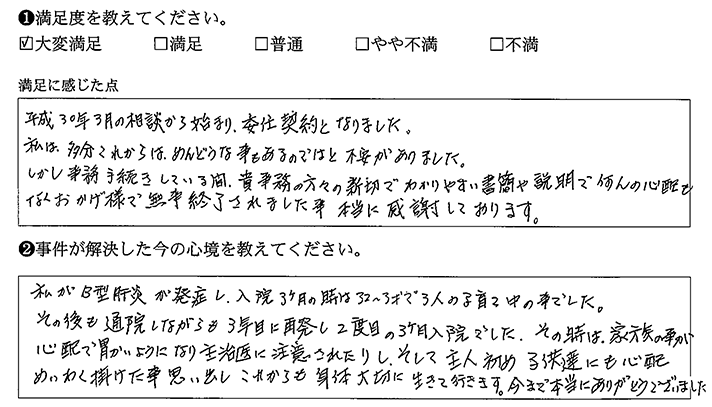 ❶満足度を教えてください。
☑大変満足 □満足 □普通 □やや不満 □不満
満足に感じた点
平成30年3月の相談から始まり、委任契約となりました。
私は、多分これからは、めんどうな事もあるのではと不安がありました。
しかし事務手続きしている間、貴事務の方々の親切でわかりやすい書簡や説明で何んの心配も
なくおかげ様で無事終了されました事 本当に感謝しております。
❷事件が解決した今の心境を教えてください。
私がB型肝炎が発症し、入院3ヶ月の時は32〜3才で3人の子育て中の事でした。
その後も通院しながらも3年目に再発し2度目の3ヶ月入院でした。その時は、家族の事が
心配で胃かいようになり主治医に注意されたりし、そして主人初め子供達にも心配
めいわく掛けた事思い出しこれからも身体大切に生きて行きます。今まで本当にありがとうございました